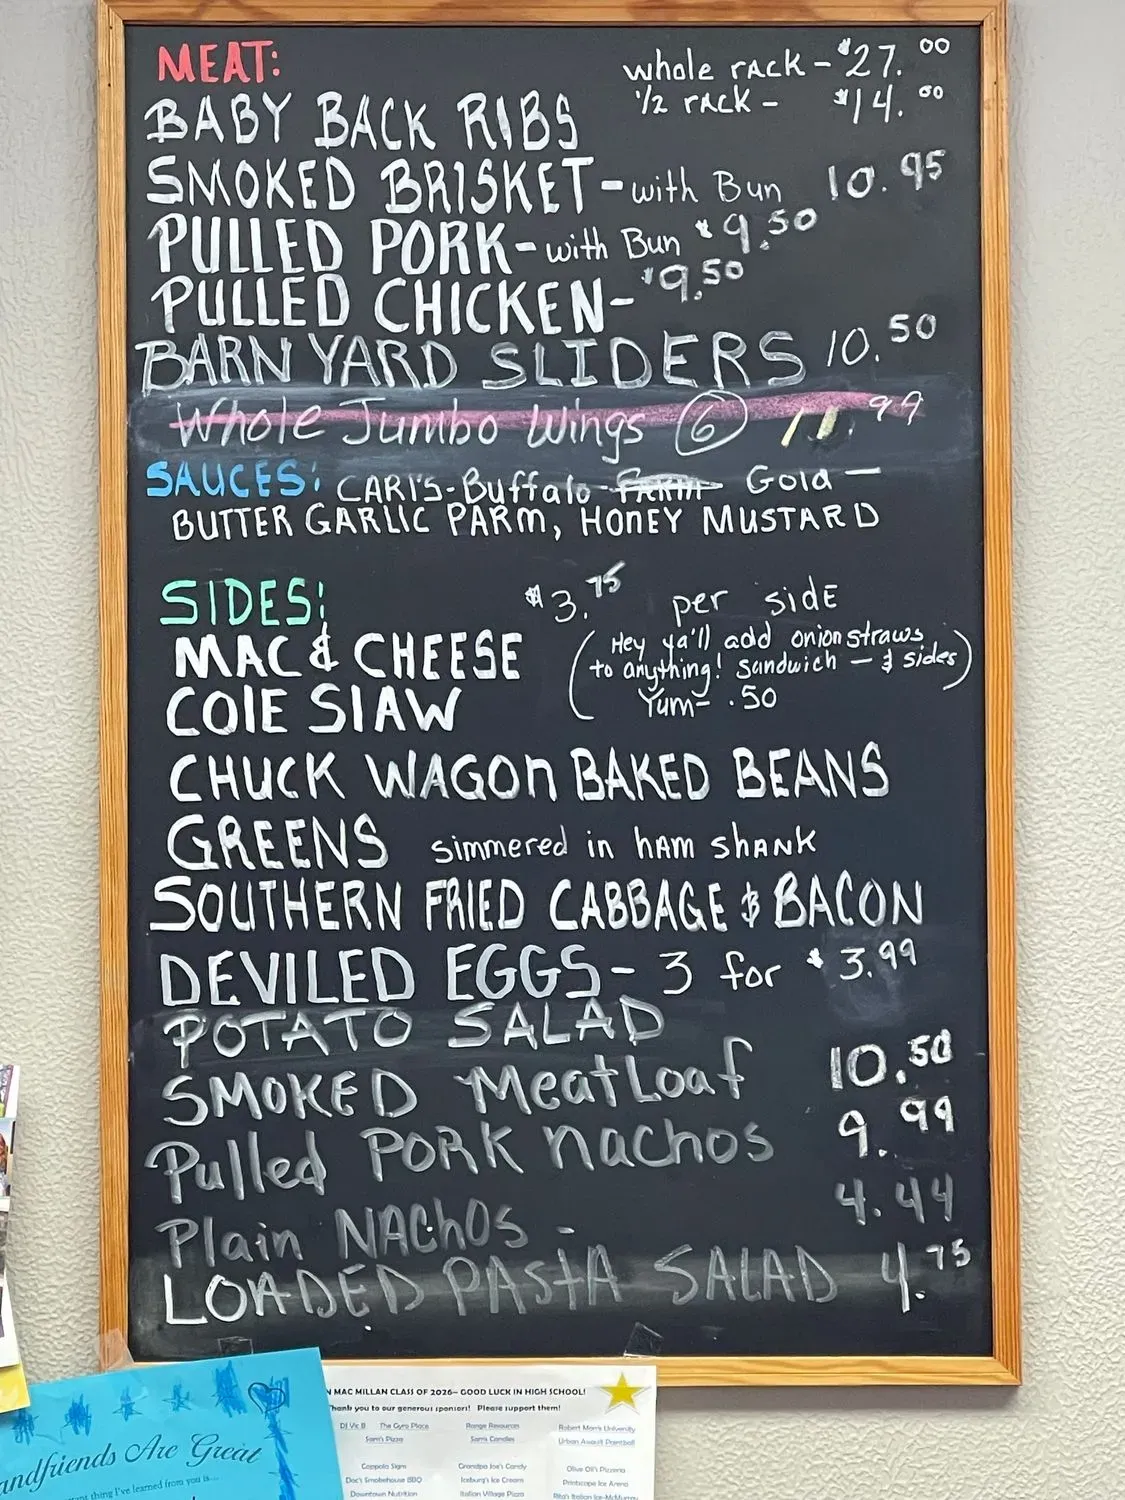 MEAT:
whole rack - $27.00
1/2 rack - $14.00
BABY BACK RIBS
SMOKED BRISKET - with Bun 10.95
PULLED PORK - with Bun $9.50
PULLED CHICKEN - $9.50
BARN YARD SLIDERS 10.50
Whole Jumbo Wings 6 11.99
SAUCES: CARI'S - Buffalo - Gold -
BUTTER GARLIC PARM, HONEY MUSTARD
SIDES: $3.75 per side
MAC & CHEESE
(Hey ya'll add onion straws
to anything! Sandwich - & sides)
Yum - .50
COlE SlAW
CHUCK WAGON BAKED BEANS
GREENS simmered in ham shank
SOUTHERN FRIED CABBAGE & BACON
DEVILED EGGS - 3 for $3.99
POTATO SALAD
SMOKED MeatLoaf 10.50
Pulled PORK nachos 9.99
Plain NAChOS - 4.44
LOADED PASTA SALAD 4.75
andfriends Are Great
thing I've learned from you is...
N MAC MILLAN CLASS OF 2026– GOOD LUCK IN HIGH SCHOOL!
Thank you to our generous sponsors! Please support them!
DJ Vic B The Gyro Place Range Resources Robert Morris University
Sam's Pizza Sam's Candles Urban Assault Paintball
Coppola Signs Grandpa Joe's Candy Olive Oil's Pizzeria
Doc's Smokehouse BBQ Iceburg's Ice Cream Printscape Ice Arena
Downtown Nutrition Italian Village Pizza Rita's Italian Ice-McMurray